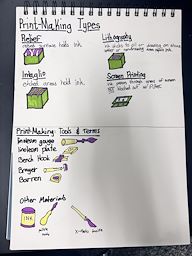 Print-Making Types
Relief
raised surface holds ink
Lithography
ink sticks to oil or drawing on stone
water or nondrawing area repels ink
Intaglio
etched areas hold ink
Screen Printing
ink passes through areas of screen
not blocked out w/ filler
Print-Making: Tools & Terms
linoleum gouge
linoleum plate
Bench Hook
Brayer
Barren
Other Materials
INK
X-Acto knife